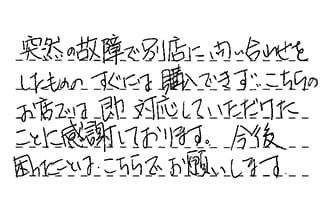 突然の故障で別店に問い合わせを
したものの すぐには購入できず、こちらの
お店では 即対応していただけた
ことに感謝しております。 今後
困ったことは、こちらでお願いします